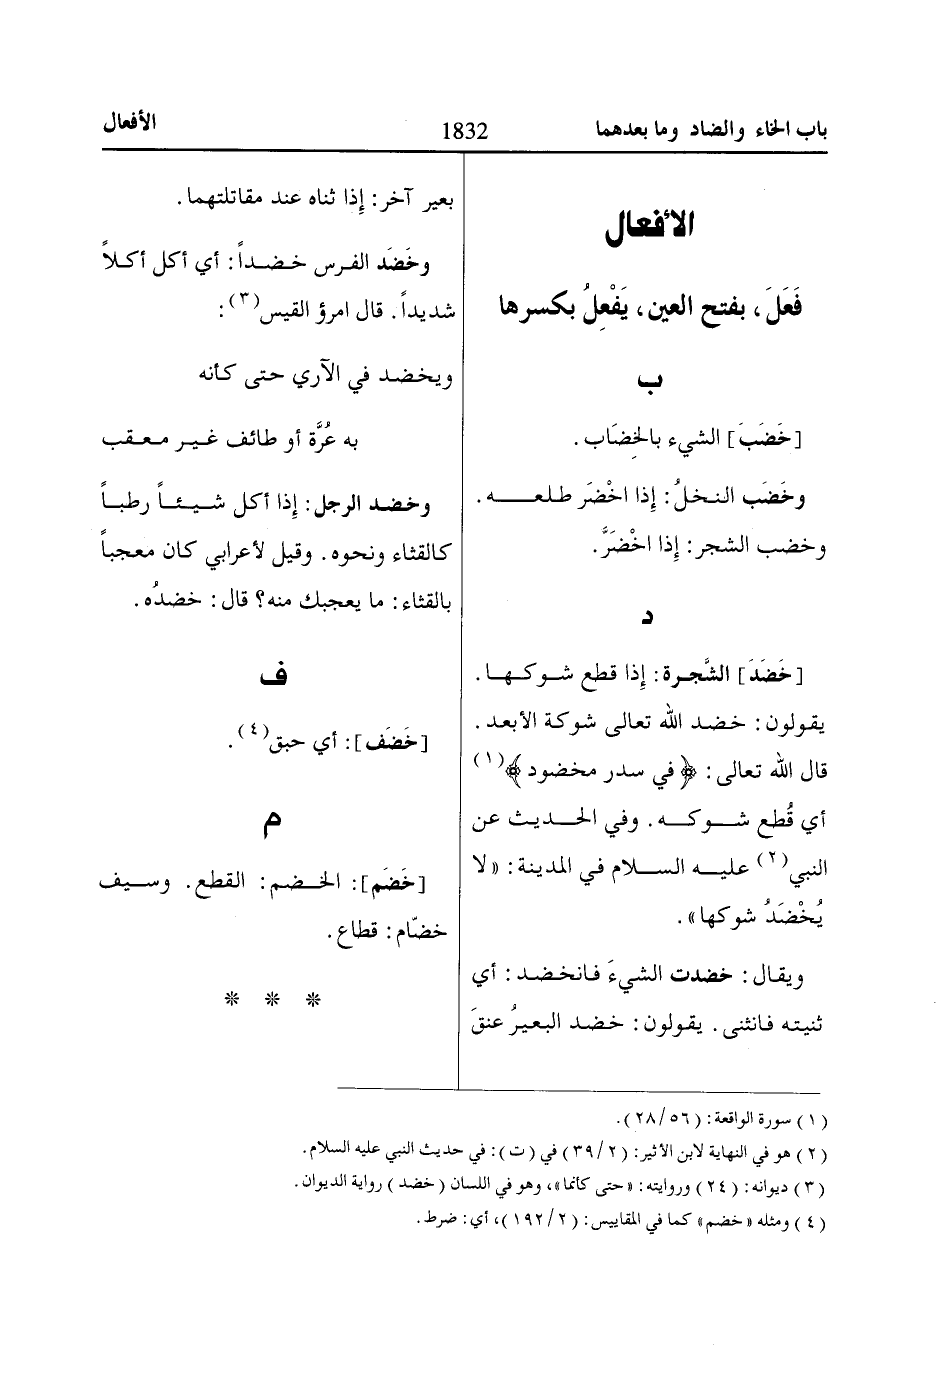 باب الخاء والضاد وما بعدهما
1832
الأفعال
الأفعال
فَعَلَ، بفتح العين، يَفْعِلُ بكسرها
ب
[خَضَبَ] الشيء بالخضَاب.
وخَضَب النخلُ: إذا اخْضَر طلعـــه.
وخضب الشجر: إذا اخْضَرَّ.
د
[خَضَدَ] الشَّجرة: إذا قطع شوكها.
يقولون: خضد الله تعالى شوكة الأبعد.
قال الله تعالى: ﴿في سدر مخضود﴾(١)
أي قُطع شوكه. وفي الحديث عن
النبي(٢) عليه السلام في المدينة: «لا
يُخْضَدُ شوكها».
ويقال: خضدت الشيءَ فانخضد: أي
ثنيته فانثنى. يقولون: خضد البعيرُ عنقَ
بعير آخر: إذا ثناه عند مقاتلتهما.
وخَضَد الفرس خضداً: أي أكل أكلاً
شديداً. قال امرؤ القيس(٣):
ويخضد في الآري حتى كأنه
به عُرَّة أو طائف غير معقب
وخضد الرجل: إذا أكل شيئاً رطباً
كالقثاء ونحوه. وقيل لأعرابي كان معجباً
بالقثاء: ما يعجبك منه؟ قال: خضدُه.
ف
[خَضَف]: أي حبق(٤).
م
[خَضَم]: الخضم: القطع. وسيف
خضّام: قطاع.
* * *
(١) سورة الواقعة: (٢٨/٥٦).
(٢) هو في النهاية لابن الأثير: (٣٩/٢) في (ت): في حديث النبي عليه السلام.
(٣) ديوانه: (٢٤) وروايته: «حتى كأنما»، وهو في اللسان (خضد) رواية الديوان.
(٤) ومثله «خضم» كما في المقاييس: (١٩٢/٢)، أي: ضرط.